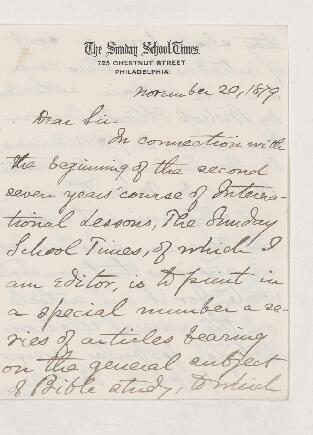 The Sunday School Times.
725 CHESTNUT STREET
PHILADELPHIA.
November 20, 1879.
Dear Sir-
In connection with
the beginning of the second
seven years' course of Interna-
tional Lessons, The Sunday
School Times, of which I
am Editor, is to print in
a special number a se-
ries of articles bearing
on the general subject
of Bible study, to which